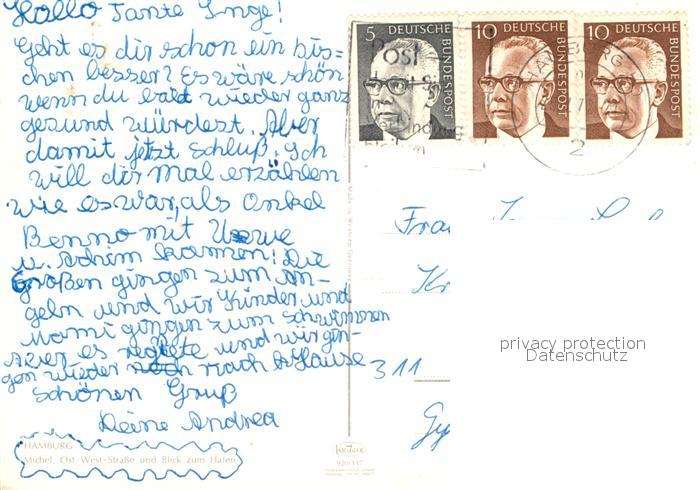 Hallo Tante Inge!
Geht es dir schon ein bis-
chen besser? Es wäre schön
wenn du bald wieder ganz
gesund würdest. Aber
damit jetzt Schluß. Ich
will dir mal erzählen
wie es war, als Onkel
Benno mit Uwe
u. Achim kamen! Die
Großen gingen zum An-
geln und wir Kinder und
Mami gingen zum schwimmen
Aber es regnete und wir gin-
gen wieder nach Hause
Schönen Gruß
Deine Andrea
HAMBURG
Michel, Ost-West-Straße und Blick zum Hafen
5 DEUTSCHE BUNDESPOST
10 DEUTSCHE BUNDESPOST
10 DEUTSCHE BUNDESPOST
Post
HAMBURG
2
Frau
311
privacy protection
Datenschutz